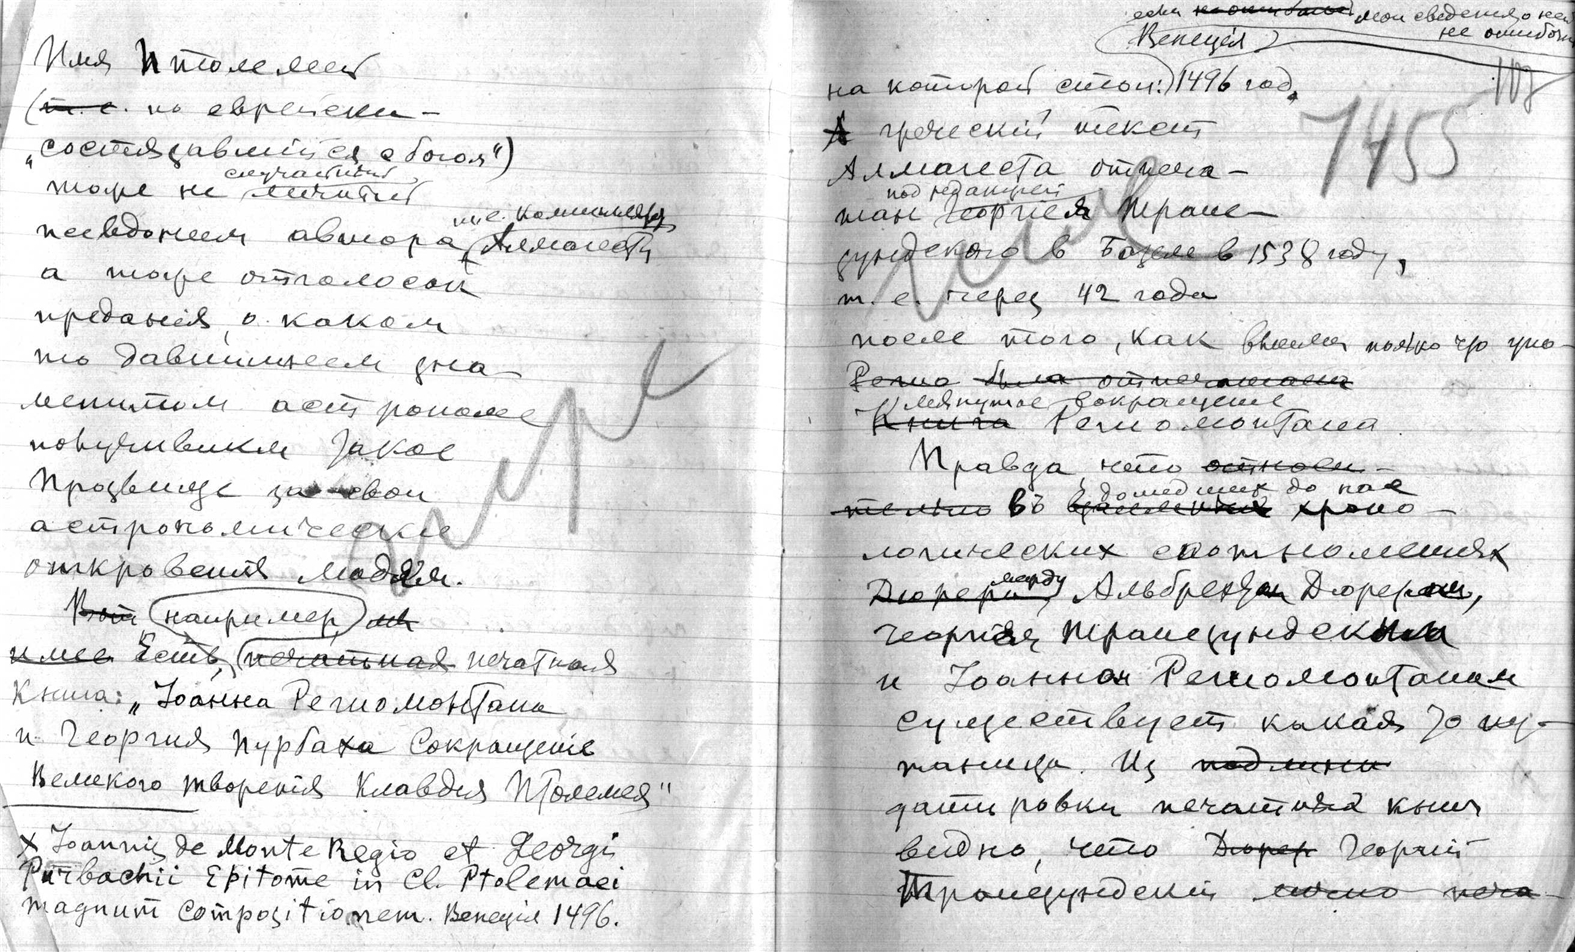 Имя Птолемей
(т.е. по еврейски -
„состязавшийся с богом")
случайный
тоже не личный
т.е. компилятор
псевдоним автора Алмагеста
а тоже отголосок
предания о каком
то давнишнем зна-
менитом астрономе
получившем такое
прозвище за свои
астрономические
откровения людям.
Вот например,
имее Есть, печатная печатная
Книга: „Iоанна Региомонтана
и Георгия Пурбаха Сокращенiе
Великого творенiя Клавдiя Птолемея"
x Joannis de Monte Regio et Georgi
Purbachii Epitome in Cl. Ptolemaei
magnum compositionem. Венецiя 1496.
если мои сведения о ней
не ошибочн
Венецiя
на которой стоит: 1496 год.
103
1455
А греческий текст
Алмагеста отпеча-
под редакцией
тан Георгия Трапе-
зундского в Базеле в 1538 году,
т. е. через 42 года
после того, как вышла только что упо-
Регио была отпечатана
мянутое сокращение
Книга Региомонтана
Правда, что основа-
дошедших до нас
тельно въ хроно-
логических соотношениях
между
Дюрером Альбрехтом Дюрером,
Георгием Трапезундским
и Iоанном Региомонтаном
существует какая то пу-
таница. Из подлини
датировки печатной книги
видно, что Дюрер Георгий
Трапезундский печа-